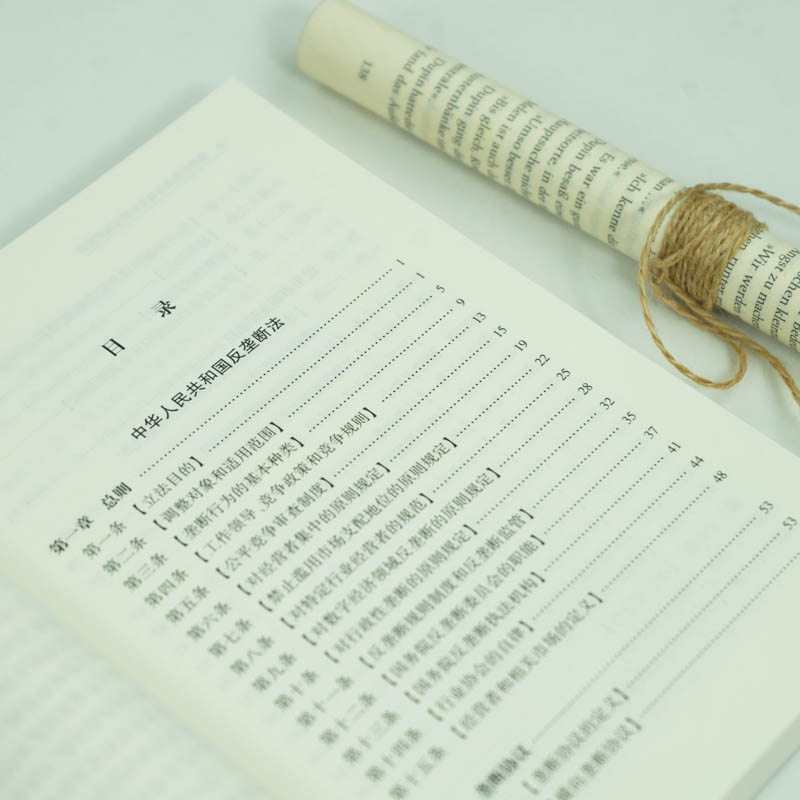 目 录
中华人民共和国反垄断法
第一章 总则 …… 1
第一条 【立法目的】 …… 1
第二条 【调整对象和适用范围】 …… 5
第三条 【垄断行为的基本种类】 …… 9
第四条 【工作领导、竞争政策和竞争规则】 …… 13
第五条 【公平竞争审查制度】 …… 15
第六条 【对经营者集中的原则规定】 …… 19
第七条 【禁止滥用市场支配地位的原则规定】 …… 22
第八条 【对特定行业经营者的规范】 …… 25
第九条 【对数字经济领域反垄断的原则规定】 …… 28
第十条 【对行政性垄断的原则规定】 …… 32
第十一条 【反垄断规则制度和反垄断监管】 …… 35
第十二条 【国务院反垄断委员会的职能】 …… 37
第十三条 【国务院反垄断执法机构】 …… 41
第十四条 【行业协会的自律】 …… 44
第十五条 【经营者和相关市场的定义】 …… 48
垄断协议 …… 53
【垄断协议的定义】 …… 53
横向垄断协议】
138
fand das
Dupin hatte
»Bis gleich,
Dupin ging
malen ist auch
»Umso besser
auptsache nicht
in der
Es war ein
Dupin besaß
»Ich kenne
»Wir werden
Angst zu mache